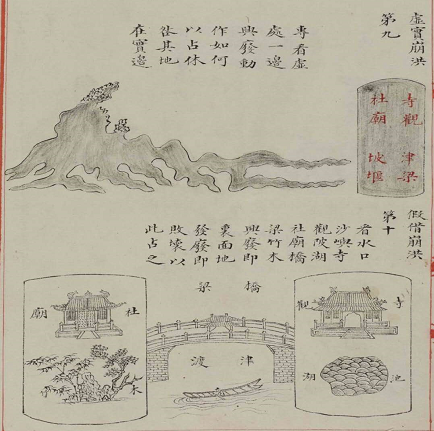 虛實崩洪
第九
專看虛
處一邊
興發動
作如何
以占休
咎其地
在實邊
寺觀 津梁
社廟 坡堰
假借崩洪
第十
看水口
沙嶼寺
觀陂湖
社廟橋
梁竹木
興發即
裏面地
發發即
敗壞以
此占之
寺觀
池湖
橋梁
津渡
社廟
木